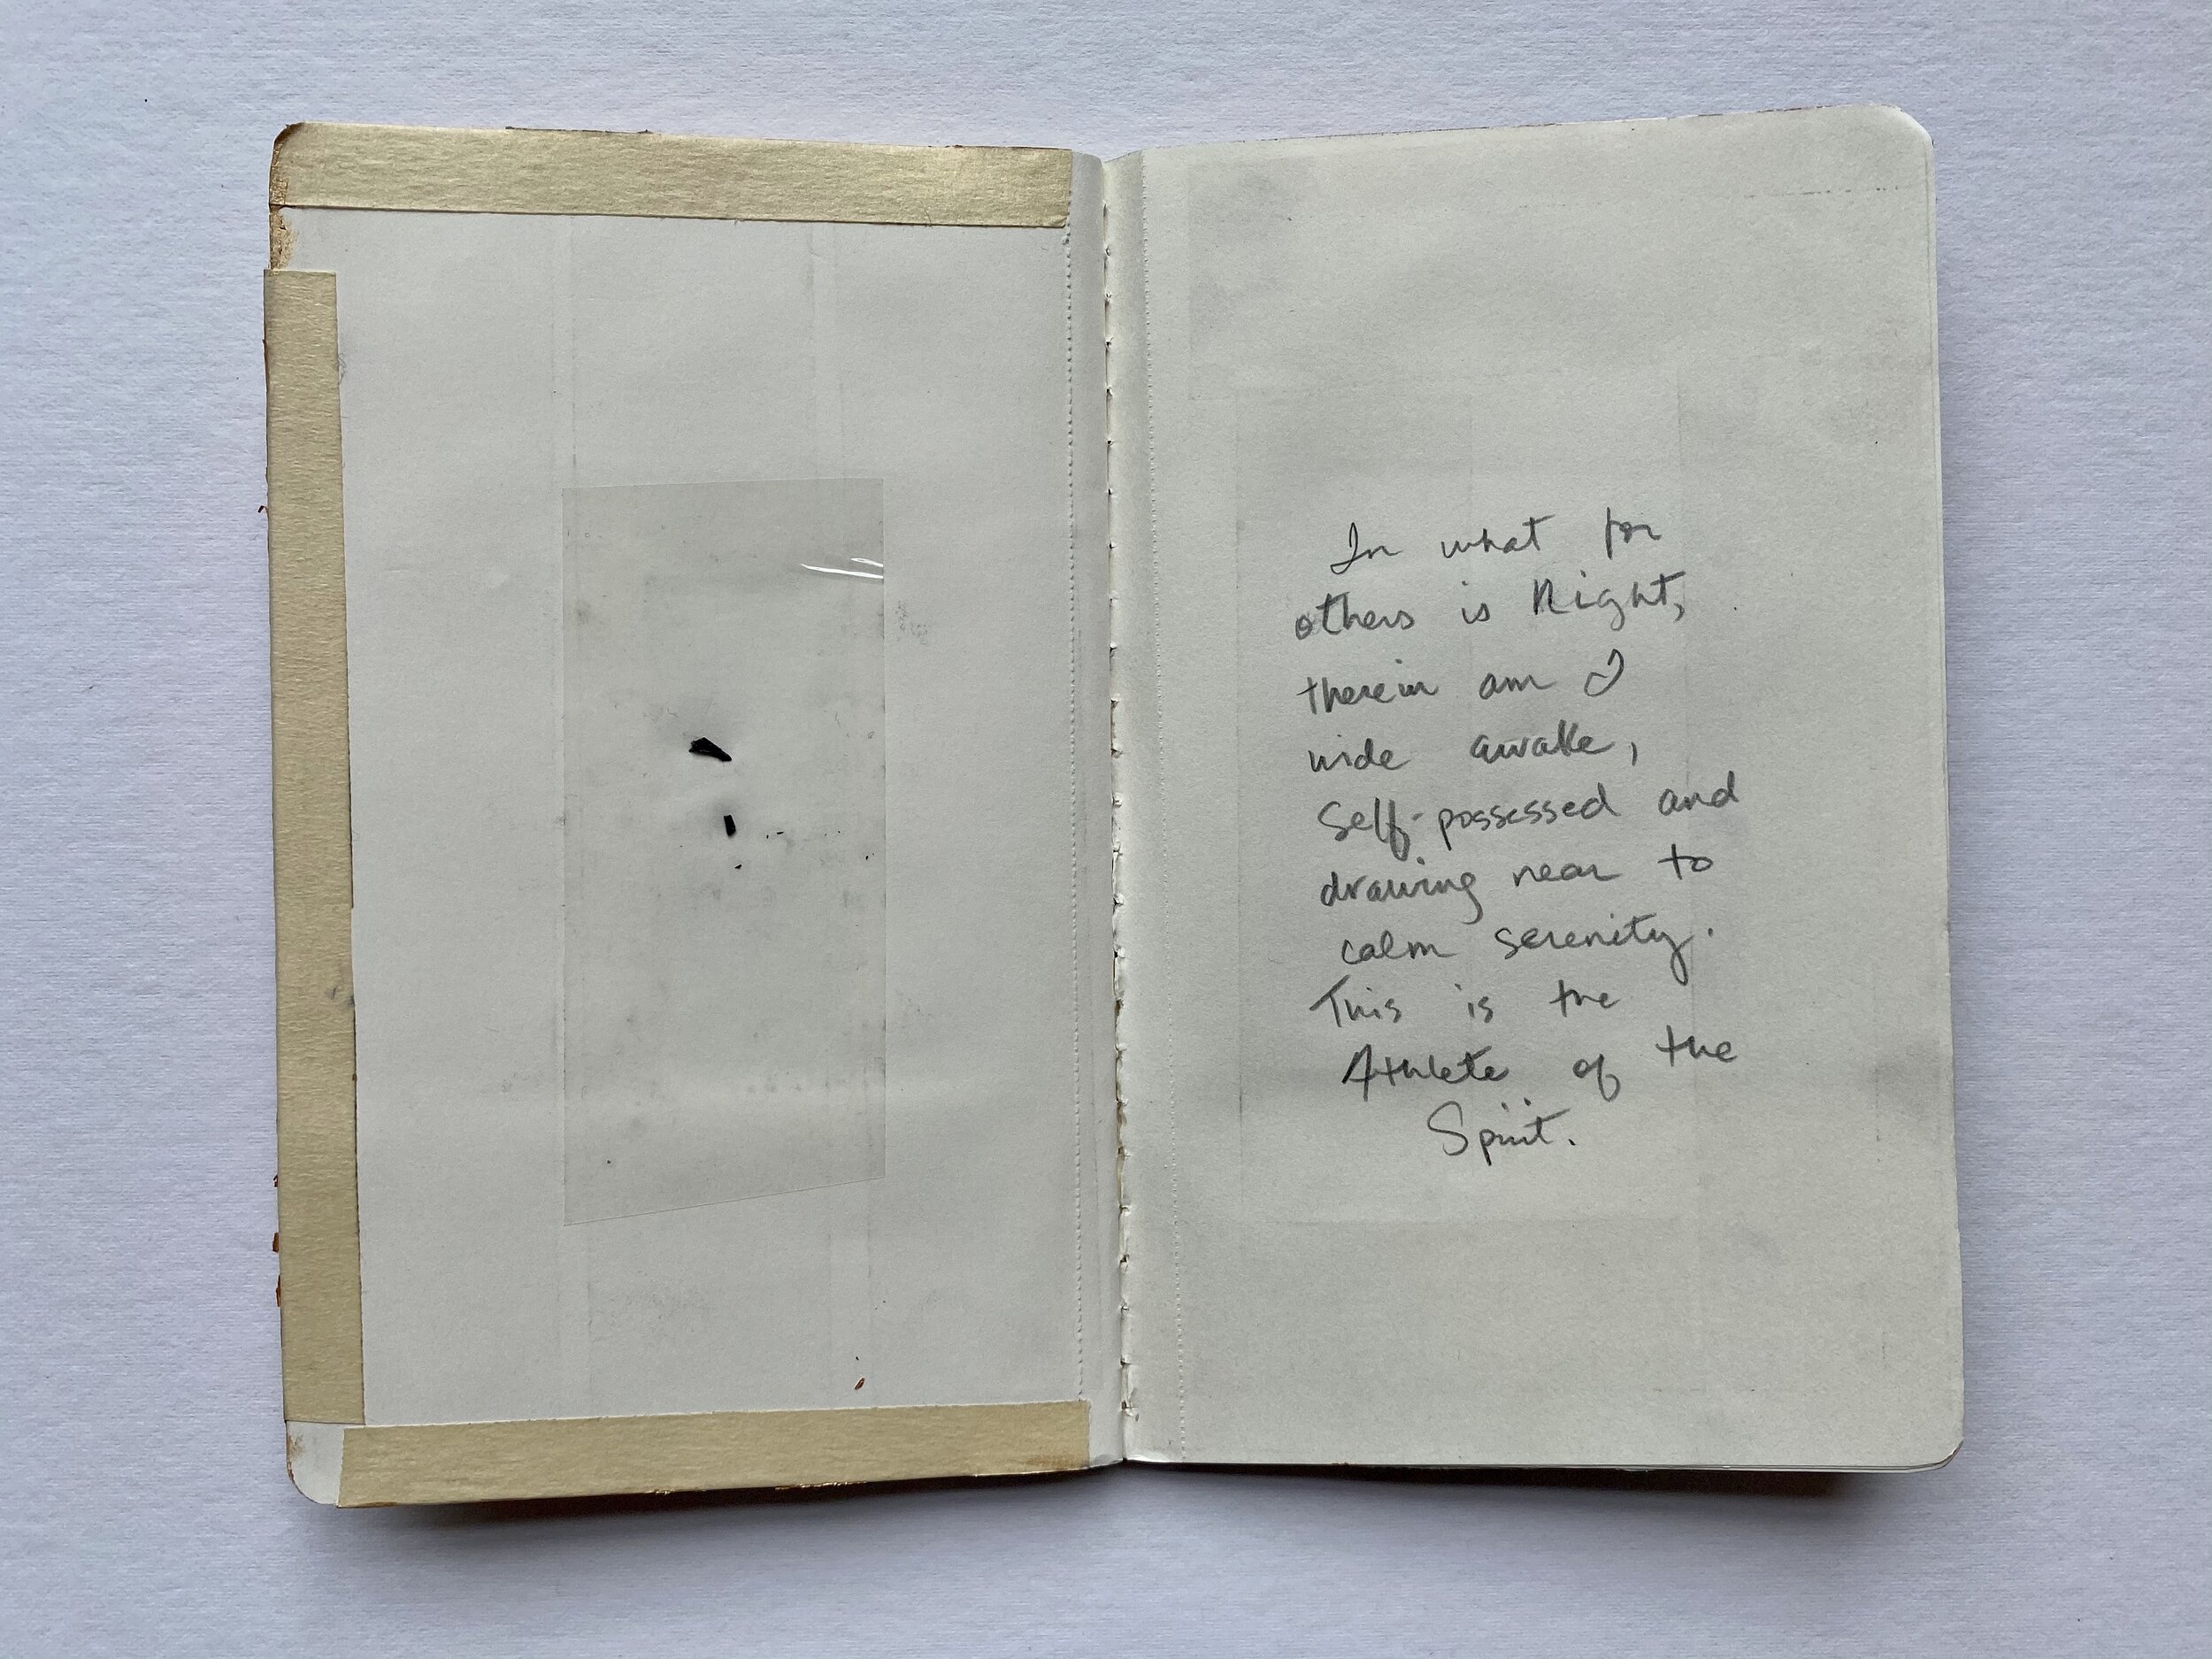 In what for
others is Night,
therein am I
wide awake,
self-possessed and
drawing near to
calm serenity.
This is the
Athlete of the
Spirit.